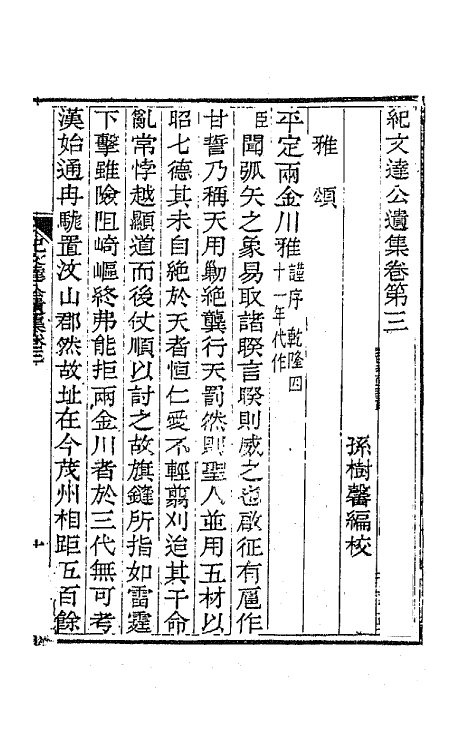 紀文達公遺集卷第三
孫樹馨編校
雅頌
平定兩金川雅謹序 乾隆四十一年代作
臣聞弧矢之象易取諸睽言睽則威之也啟征有扈作
甘誓乃稱天用勦絕龔行天罰然則聖人並用五材以
昭七德其未自絕於天者恒仁愛不輕翦刈迨其干命
亂常悖越顯道而後仗順以討之故旗鏠所指如雷霆
下擊雖險阻崎嶇終弗能拒兩金川者於三代無可考
漢始通冉駹置汶山郡然故址在今茂州相距五百餘